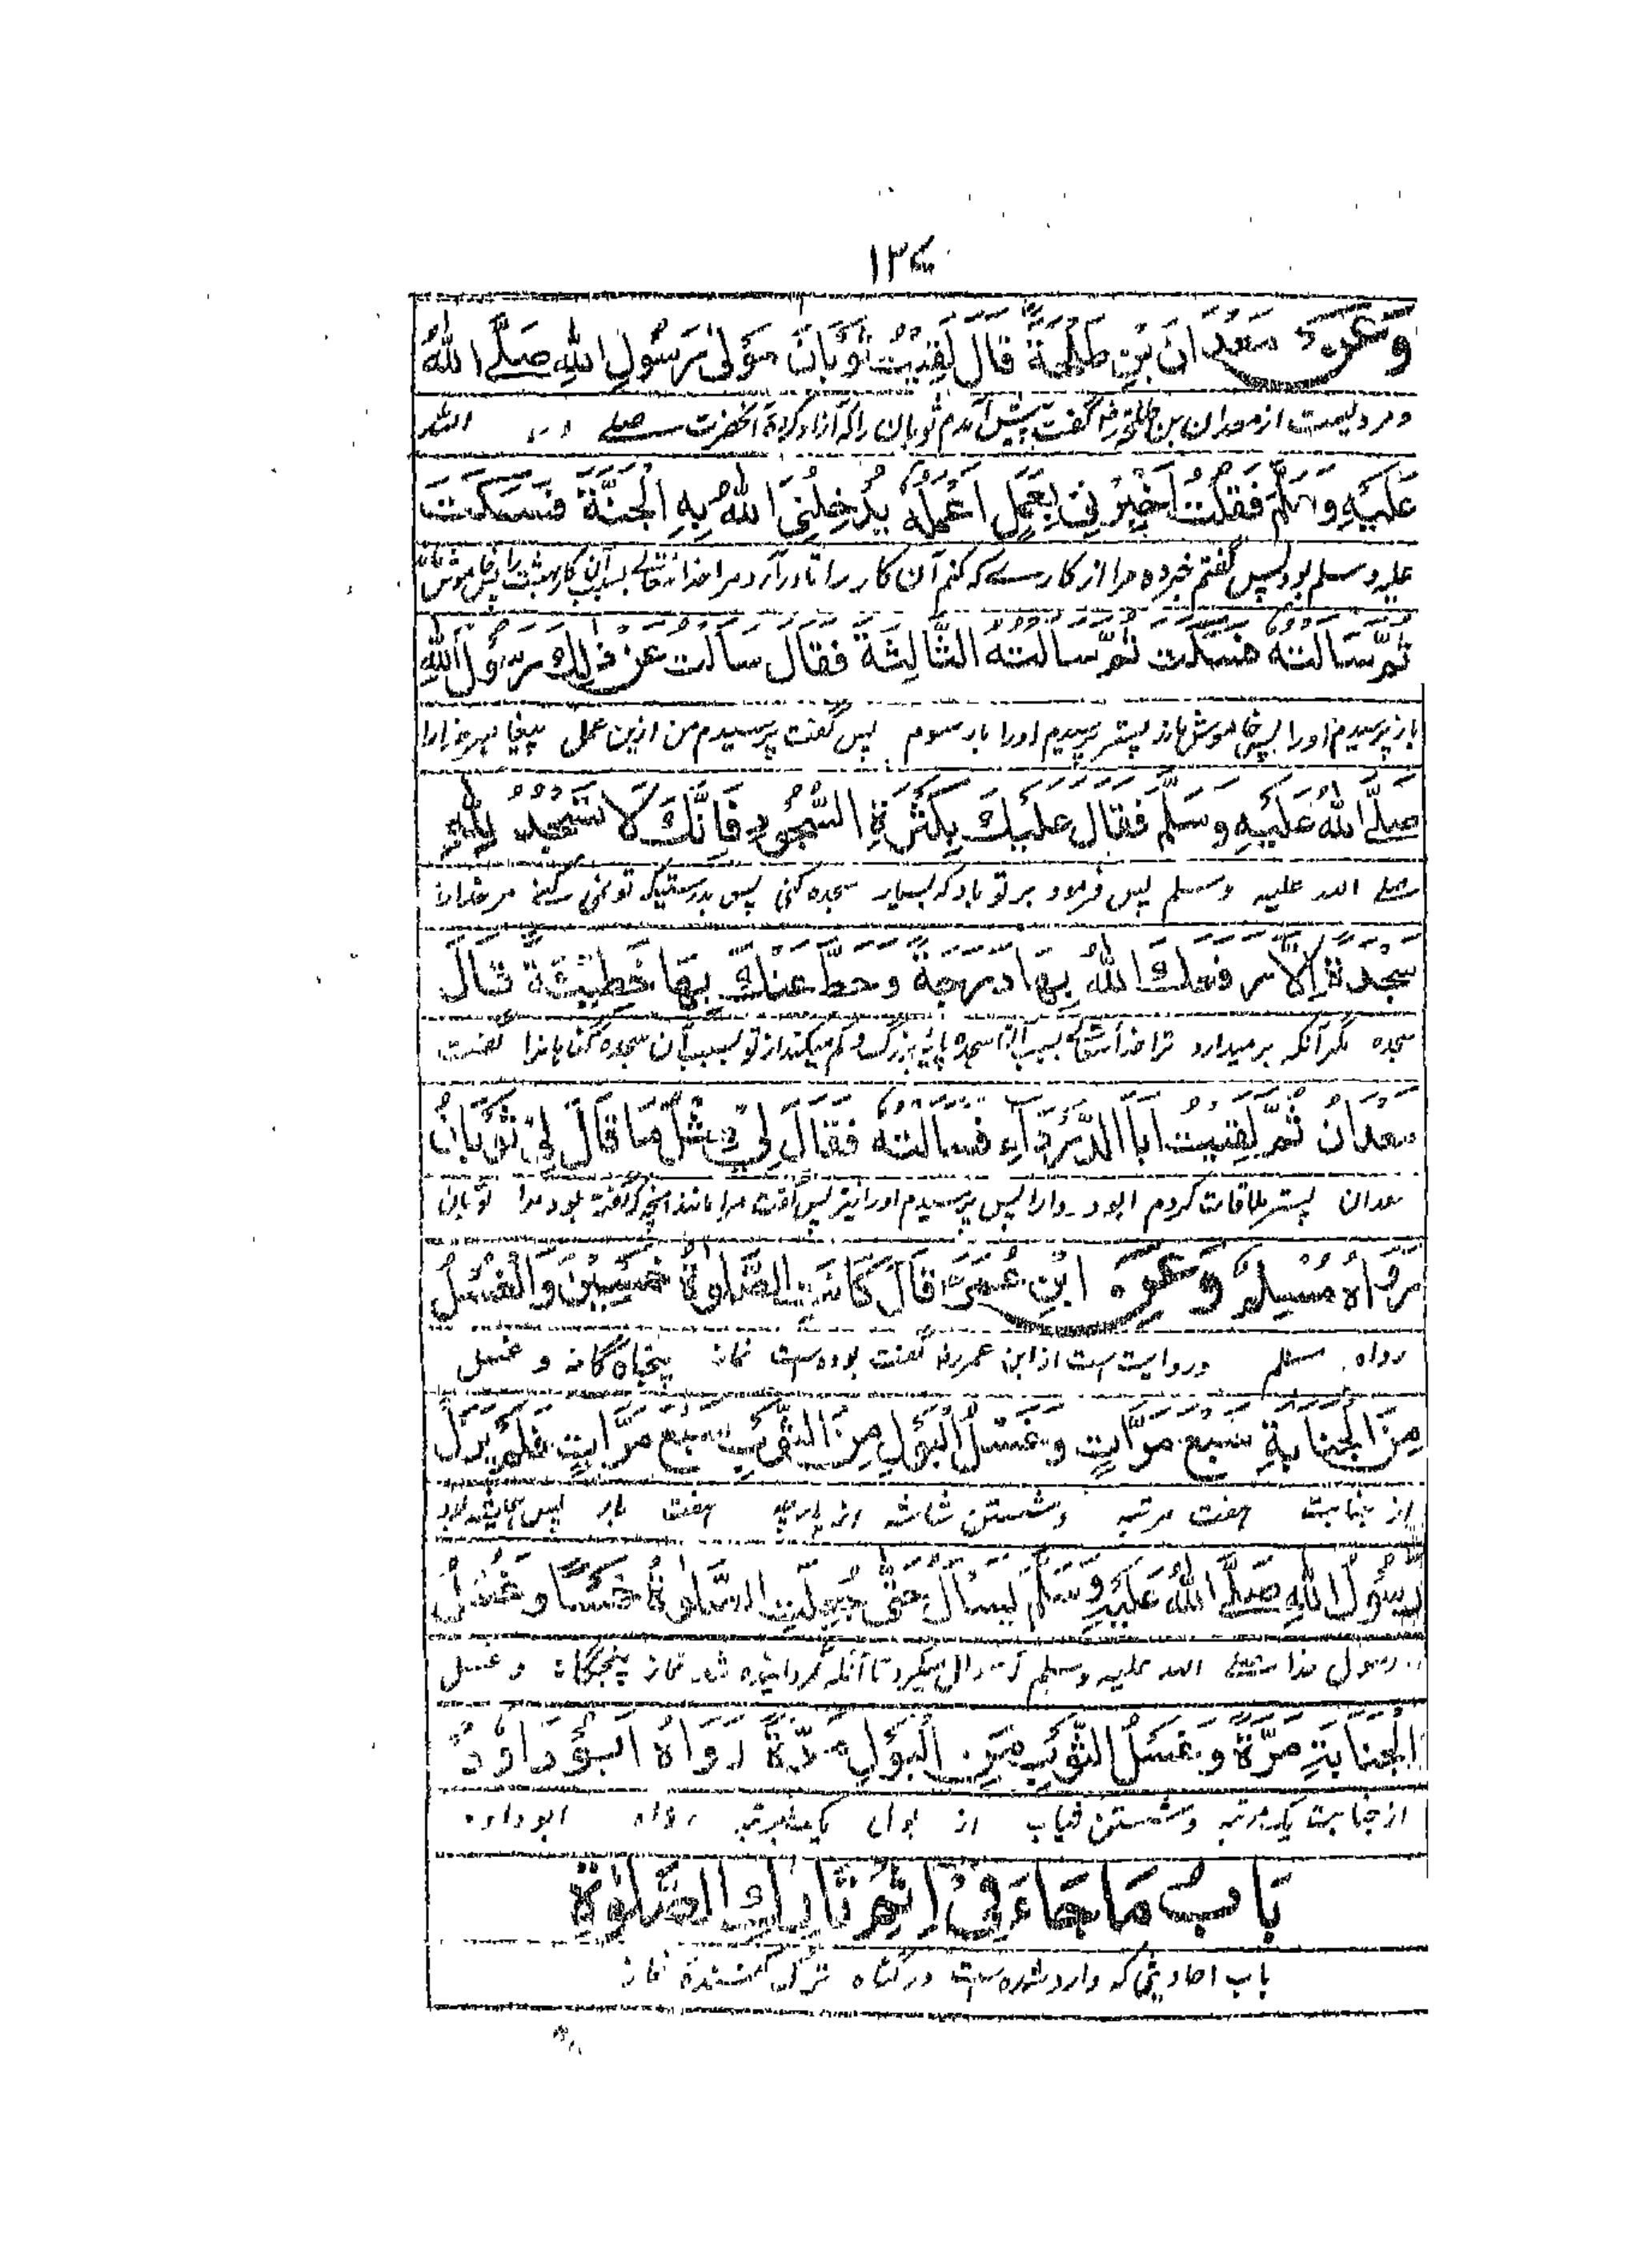 وَعَنْ مَعْدَانَ بْنِ طَلْحَةَ قَالَ لَقِيتُ ثَوْبَانَ مَوْلٰى رَسُولِ اللهِ صَلَّے اللهُ
از معدان بن طلحه گفت پیش آمدم ثوبان را که آزاد کردۀ آنحضرت صلے الله
عَلَيْهِ وَسَلَّمَ فَقُلْتُ اَخْبِرْنِيْ بِعَمَلٍ اَعْمَلُهُ يُدْخِلُنِيَ اللهُ بِهِ الْجَنَّةَ فَسَكَتَ
علیه وسلم بود پس گفتم خبر ده مرا از کارے که کنم آن کار را تا درآرد مرا خدا تعالے بسبب آن کار بهشت را پس خاموش ماند
ثُمَّ سَاَلْتُهُ فَسَكَتَ ثُمَّ سَاَلْتُهُ الثَّالِثَةَ فَقَالَ سَاَلْتُ عَنْ ذٰلِكَ رَسُوْلَ اللهِ
باز پرسیدم اورا پس خاموش ماند پستر پرسیدم اورا بار سوم پس گفت پرسیدم من ازین عمل پیغامبر خدارا
صَلَّے اللهُ عَلَيْهِ وَسَلَّمَ فَقَالَ عَلَيْكَ بِكَثْرَةِ السُّجُوْدِ فَاِنَّكَ لَا تَسْجُدُ لِلّٰهِ
صلے الله علیه وسلم پس فرمود بر تو باد که بسیار سجده کنی پس بدرستیکه تو نمی کنے مر خدارا
سَجْدَةً اِلَّا رَفَعَكَ اللهُ بِهَا دَرَجَةً وَحَطَّ عَنْكَ بِهَا خَطِيْئَةً قَالَ
سجده مگر آنکه برمیدارد ترا خدا تعالے بسبب آن سجده پایۀ بزرگ و کم میکند از تو بسبب آن سجده گناهانرا گفت
مَعْدَانُ ثُمَّ لَقِيْتُ اَبَا الدَّرْدَاءِ فَسَاَلْتُهُ فَقَالَ لِيْ مِثْلَ مَا قَالَ لِيْ ثَوْبَانُ
معدان پستر ملاقات کردم ابودردا را پس پرسیدم اورا نیز پس گفت مرا مانند آنچه گفته بود مرا ثوبان
رَوَاهُ مُسْلِمٌ وَعَنْ ابْنِ عُمَرَ قَالَ كَانَتِ الصَّلٰوةُ خَمْسِيْنَ وَالْغُسْلُ
رواه مسلم و روایت ست از ابن عمر رضه گفت بوده ست نماز پنجاه گانه و غسل
مِنَ الْجَنَابَةِ سَبْعَ مَرَّاتٍ وَغَسْلُ الْبَوْلِ مِنَ الثَّوْبِ سَبْعَ مَرَّاتٍ فَلَمْ يَزَلْ
از جنابت هفت مرتبه و شستن شاشه از پارچه هفت بار پس همیشه بود
رَسُوْلُ اللهِ صَلَّے اللهُ عَلَيْهِ وَسَلَّمَ يَسْاَلُ حَتّٰى جُعِلَتِ الصَّلٰوةُ خَمْسًا وَغُسْلُ
رسول خدا صلے الله علیه وسلم که سوال میکرد تا آنکه گردانیده شد نماز پنجگانه و غسل
الْجَنَابَةِ مَرَّةً وَغَسْلُ الثَّوْبِ مِنَ الْبَوْلِ مَرَّةً رَوَاهُ اَبُوْ دَاوٗدَ
از جنابت یک مرتبه و شستن ثیاب از بول یک مرتبه رواه ابو داود
بَابُ مَا جَاءَ فِيْ اِثْمِ تَارِكِ الصَّلٰوةِ
باب احادیثی که وارد شده ست در گناه ترک کننده نماز